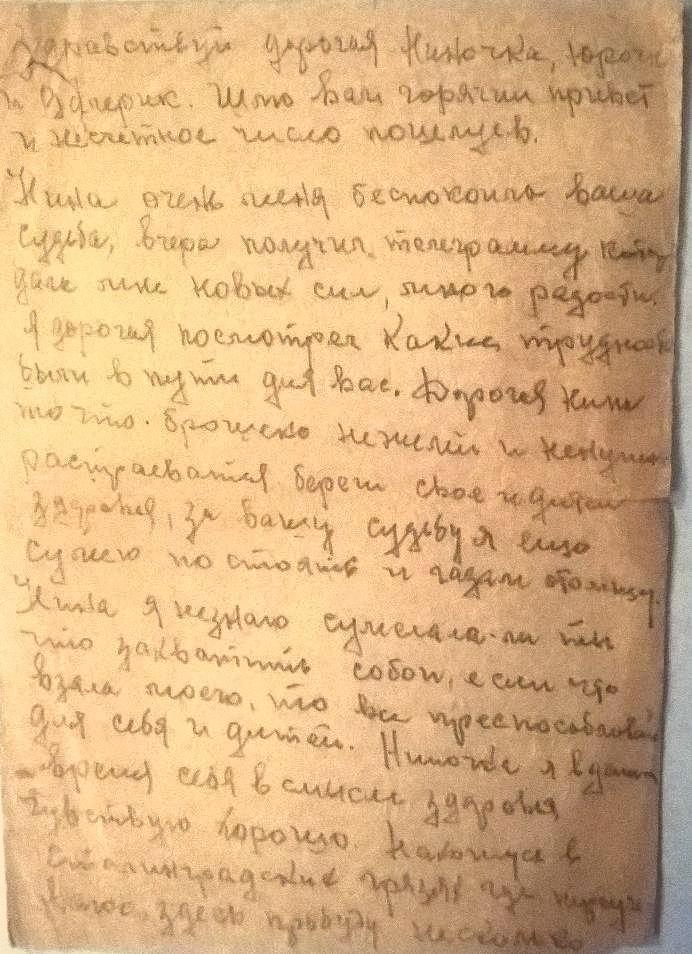 Здравствуй дорогая Ниночка, Юрочк
и Эдгерик. Шлю вам горячий привет
и несчетное число поцелуев.
Нина очень меня беспокоила ваша
судьба, вчера получил телеграмму
дала мне новых сил, много радости.
Я дорогая посмотрел какие трудност
были в пути для вас. Дорогая Нина
то что брошено нежелей и
растраеватся береги свое и дитей
здаровья, за вашу судьбу я ещо
сумею постоять и гадам отомщу.
Нина я незнаю сумела ли ты
что захватить собой, если что
взяла моего, то все преспособлевай
для себя и дитей. Ниночка я в данно
время себя в смысле здаровья
чувствую хорошо. Нахожусь в
сталинградских где
здесь пробуду несколько